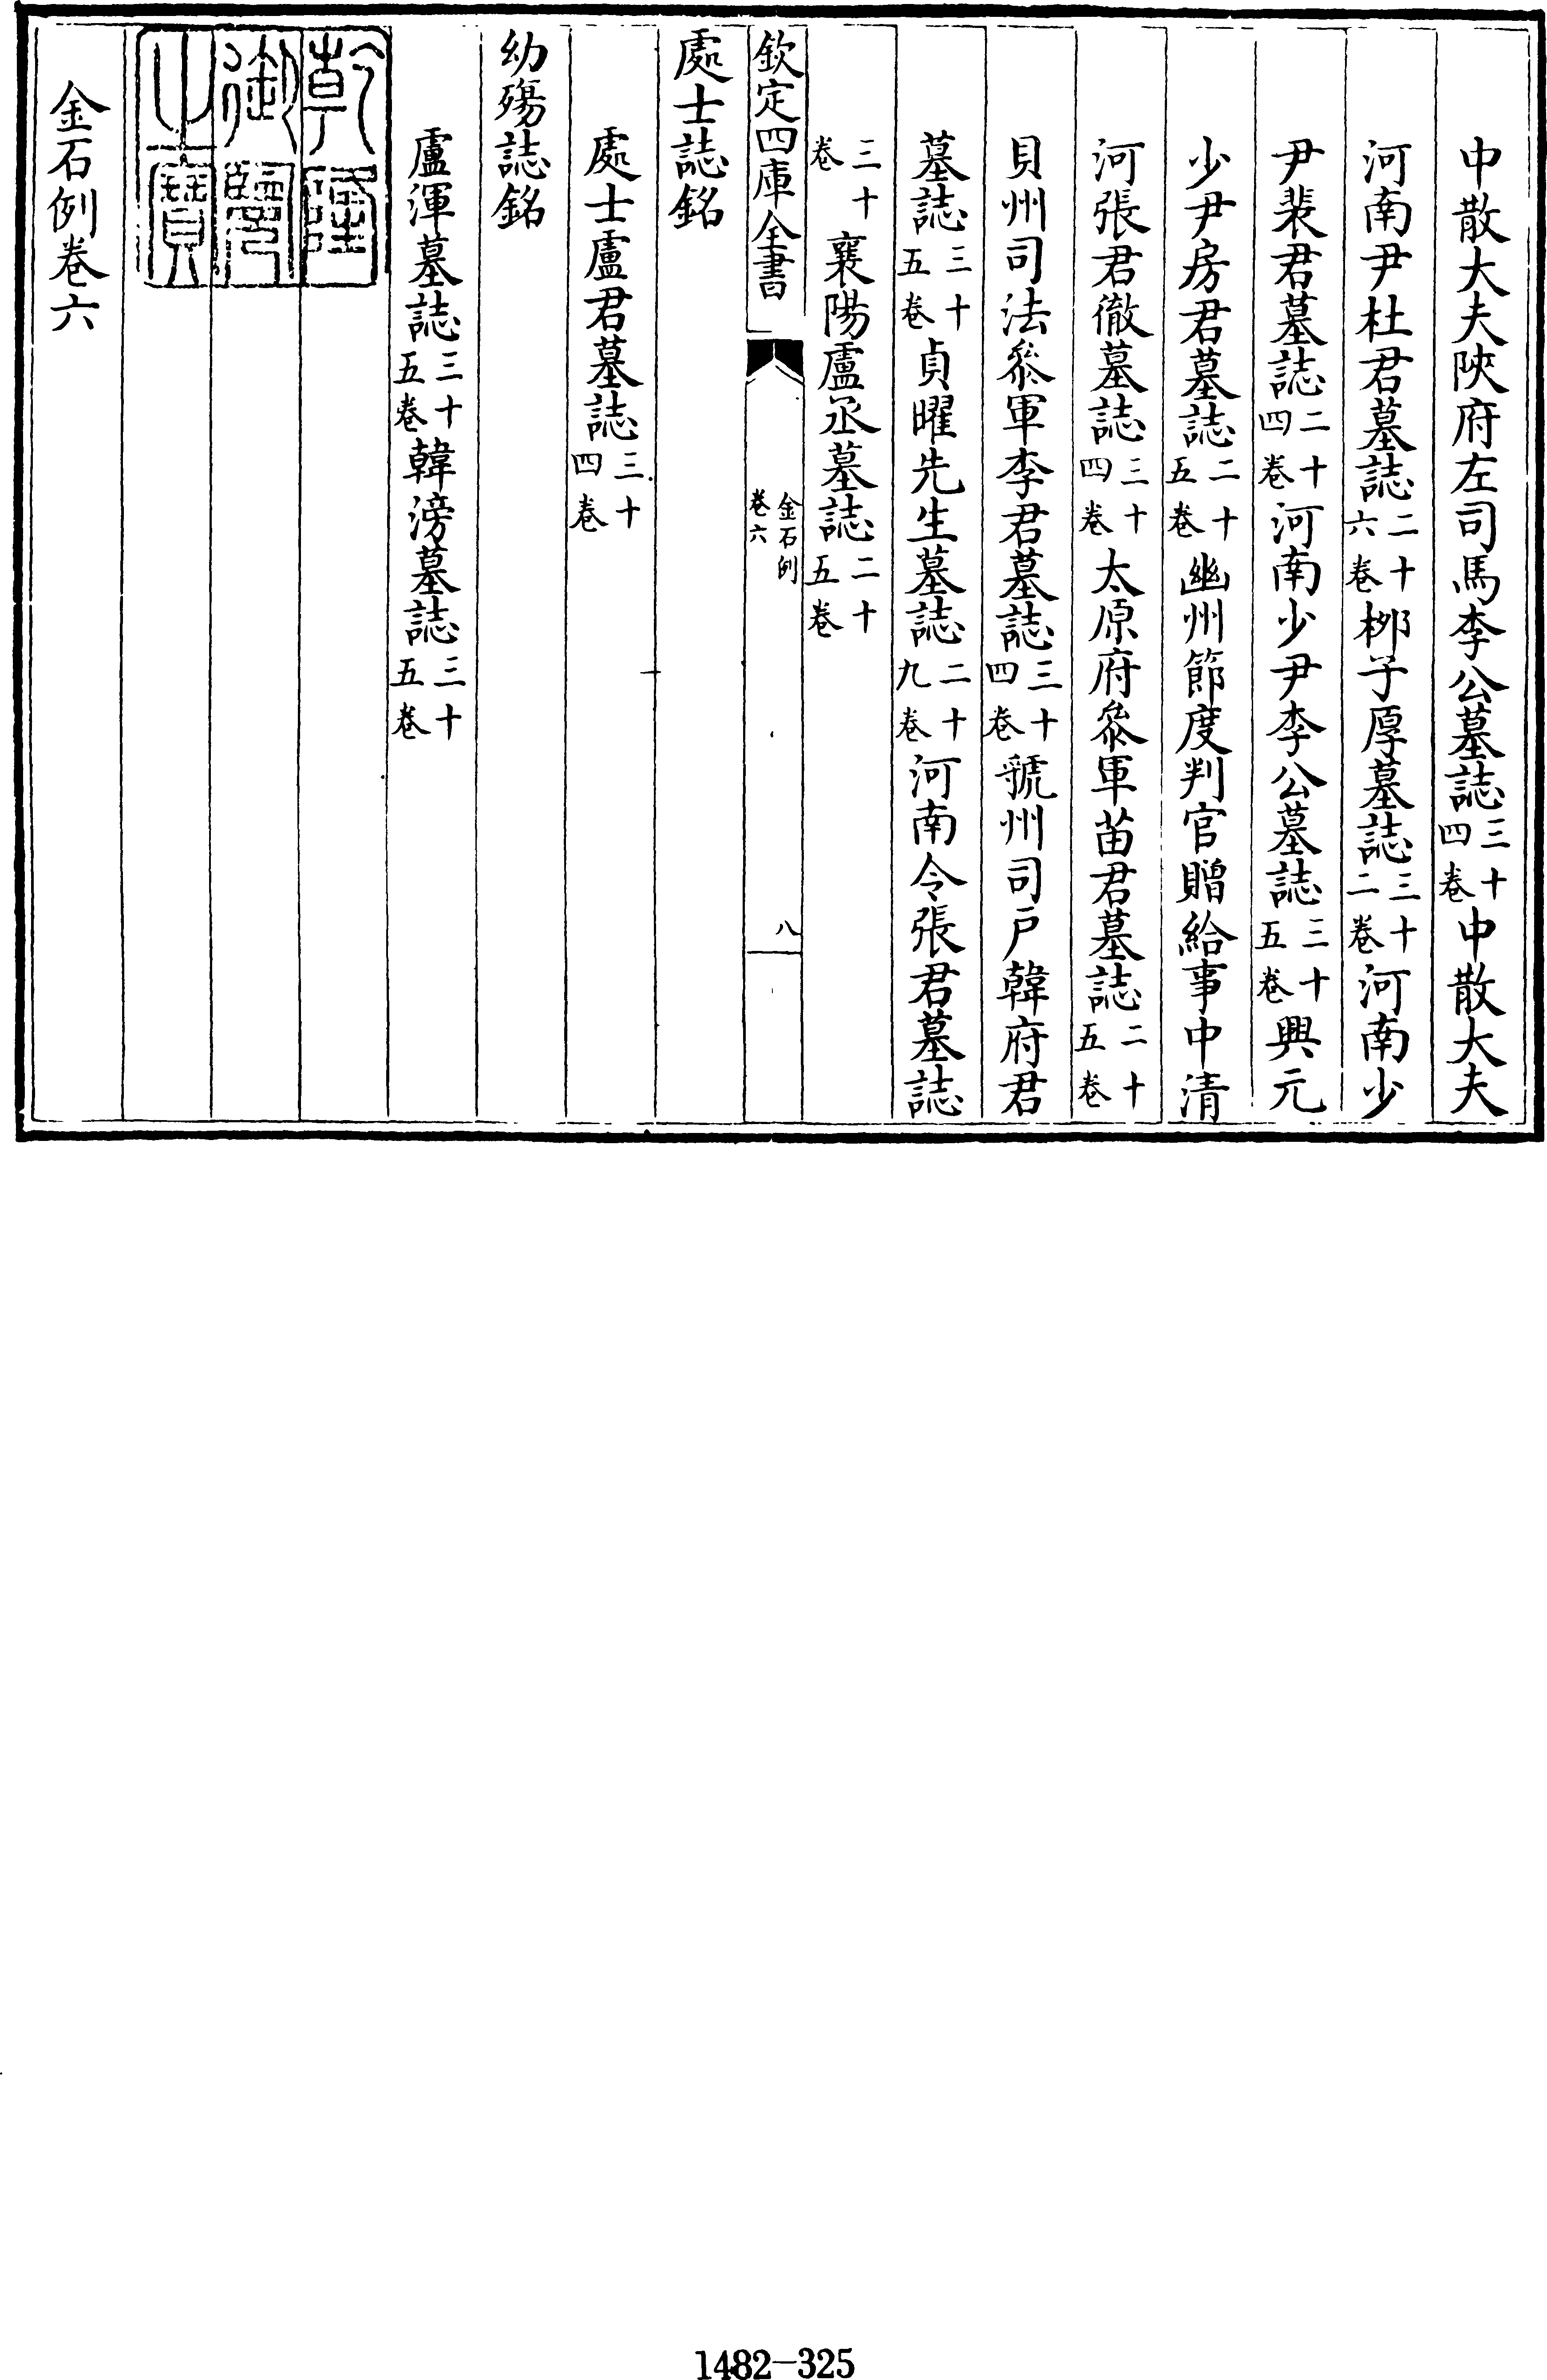 中散大夫陝府左司馬李公墓誌三十四卷中散大夫
河南尹杜君墓誌二十六卷桞子厚墓誌三十二卷河南少
尹裴君墓誌二十四卷河南少尹李公墓誌三十五卷興元
少尹房君墓誌二十五卷幽州節度判官贈給事中清
河張君徹墓誌三十四卷太原府叅軍苗君墓誌二十五卷
貝州司法叅軍李君墓誌三十四卷虢州司戶韓府君
墓誌三十五卷貞曜先生墓誌二十九卷河南令張君墓誌
三十卷襄陽盧丞墓誌二十五卷
欽定四庫全書
金石例
卷六
八
處士誌銘
處士盧君墓誌三十四卷
幼殤誌銘
盧渾墓誌三十五卷韓滂墓誌三十五卷
乾隆
御覽
之寶
金石例卷六
1482-325